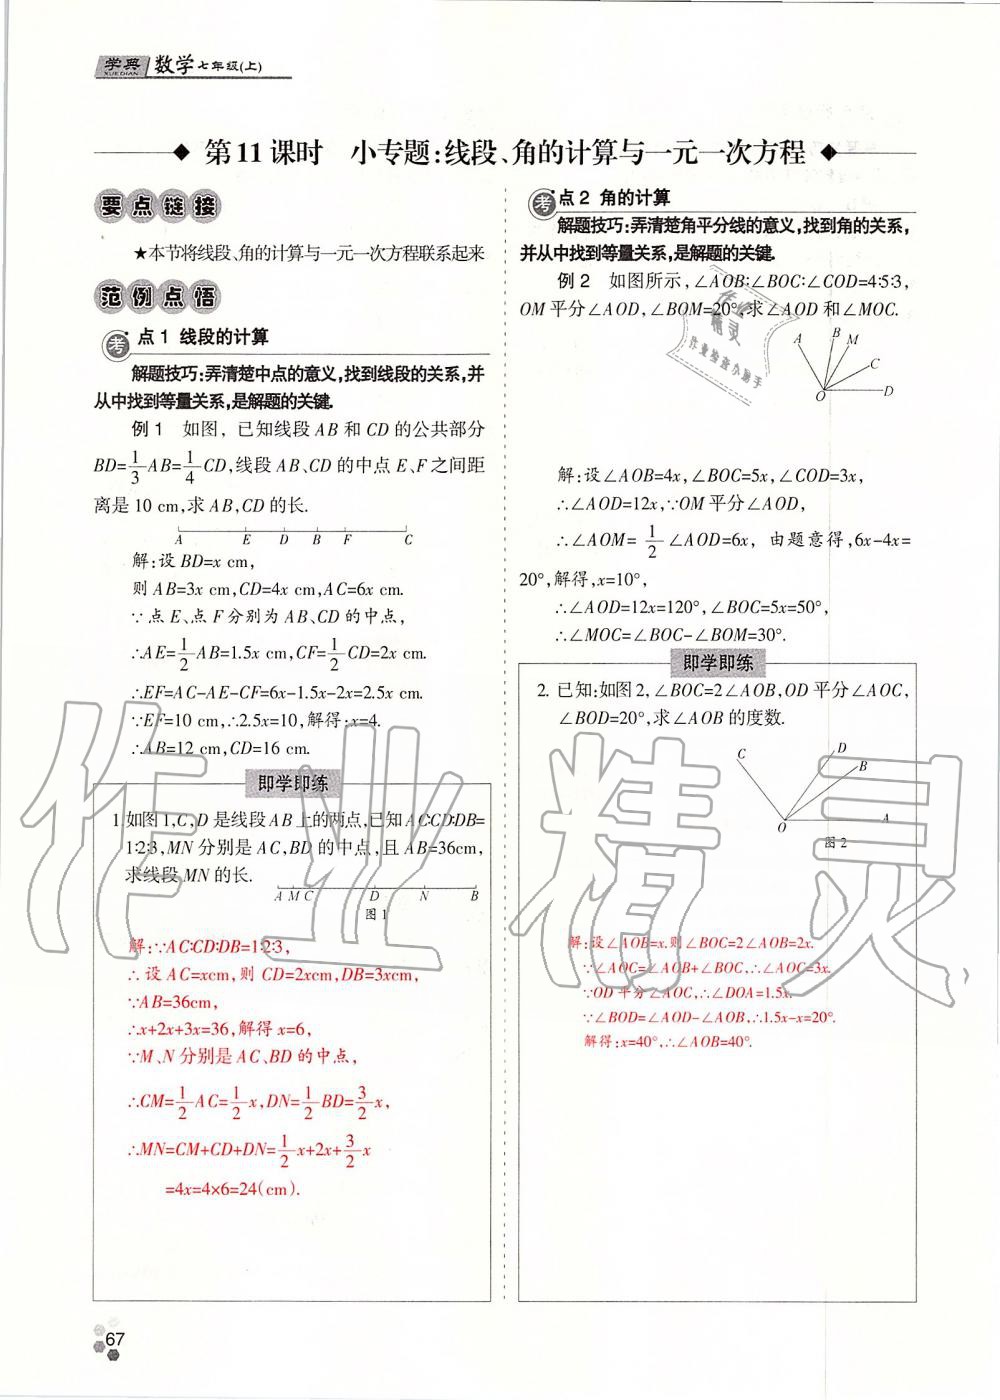 学典 数学七年级(上)
XUE DIAN
◆ 第11课时 小专题:线段、角的计算与一元一次方程 ◆
要点链接
★本节将线段、角的计算与一元一次方程联系起来
范例点悟
考点1 线段的计算
解题技巧:弄清楚中点的意义,找到线段的关系,并
从中找到等量关系,是解题的关键.
例1 如图, 已知线段AB和CD的公共部分
BD=1/3AB=1/4CD,线段AB、CD的中点E、F之间距
离是10 cm,求AB,CD的长.
A E D B F C
解:设BD=x cm,
则AB=3x cm,CD=4x cm,AC=6x cm.
∵点E、点F分别为AB、CD的中点,
∴AE=1/2AB=1.5x cm,CF=1/2CD=2x cm.
∴EF=AC-AE-CF=6x-1.5x-2x=2.5x cm.
∵EF=10 cm,∴2.5x=10,解得:x=4.
∴AB=12 cm,CD=16 cm.
即学即练
1.如图1,C,D是线段AB上的两点,已知AC∶CD∶DB=
1∶2∶3,MN分别是AC,BD的中点,且AB=36cm,
求线段MN的长.
A M C D N B
图1
解:∵AC∶CD∶DB=1∶2∶3,
∴设AC=xcm,则CD=2xcm,DB=3xcm,
∵AB=36cm,
∴x+2x+3x=36,解得x=6,
∵M、N分别是AC、BD的中点,
∴CM=1/2AC=1/2x,DN=1/2BD=3/2x,
∴MN=CM+CD+DN=1/2x+2x+3/2x
=4x=4×6=24(cm).
67
考点2 角的计算
解题技巧:弄清楚角平分线的意义,找到角的关系,
并从中找到等量关系,是解题的关键.
例2 如图所示,∠AOB∶∠BOC∶∠COD=4∶5∶3,
OM平分∠AOD,∠BOM=20°,求∠AOD和∠MOC.
A B M C O D
解:设∠AOB=4x,∠BOC=5x,∠COD=3x,
∴∠AOD=12x,∵OM平分∠AOD,
∴∠AOM=1/2∠AOD=6x, 由题意得,6x-4x=
20°,解得,x=10°,
∴∠AOD=12x=120°,∠BOC=5x=50°,
∴∠MOC=∠BOC-∠BOM=30°.
即学即练
2. 已知:如图2,∠BOC=2∠AOB,OD平分∠AOC,
∠BOD=20°,求∠AOB的度数.
C D B O A
图2
解:设∠AOB=x.则∠BOC=2∠AOB=2x.
∵∠AOC=∠AOB+∠BOC,∴∠AOC=3x.
∵OD平分∠AOC,∴∠DOA=1.5x.
∵∠BOD=∠AOD-∠AOB,∴1.5x-x=20°.
解得:x=40°,∴∠AOB=40°.
作业精灵